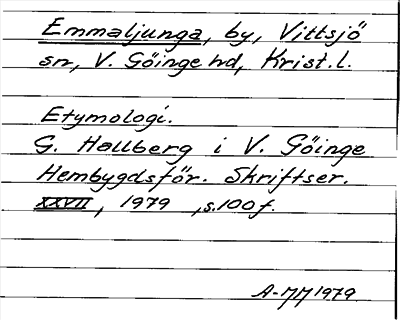 Emmaljunga, by, Vittsjö
sn, V. Göinge hd, Krist. l.
Etymologi.
G. Hallberg i V. Göinge
Hembygdsför. Skriftser.
XXVII, 1979 , s. 100 f.
A-MM 1979